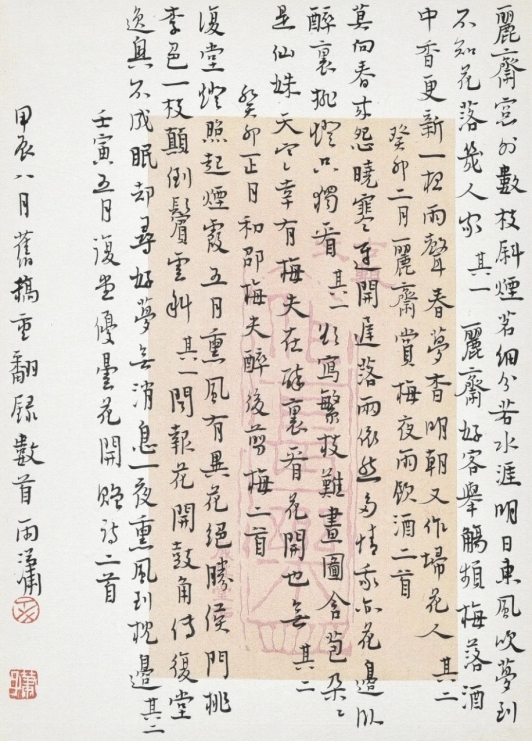 麗齋窓外數枝斜煙茗細分若水涯明日東風吹夢到
不知花落幾人家 其一 麗齋好客舉觴頻梅落酒
中香更新一枕雨聲春夢杳明朝又作埽花人 其二
癸卯二月麗齋賞梅夜雨飲酒二首
莫向春求怨曉寒開遲落雨依然多情我亦花邊臥
醉裏挑燈只獨看 其一 欲寫繁枝難畫圖含苞朵々
是仙姝天寒幸有梅夫在醉裏看花開也無 其二
癸卯正月和邵梅夫醉後剪梅二首
復堂燈照起煙霞五月熏風有異花絕勝侯門桃
李色一枝顛倒鬢雲斜 其一 聞報花開鼓角傳復堂
逸興不成眠却尋好夢無消息一夜熏風到枕邊 其二
壬寅五月復堂優曇花開贈詩二首
甲辰八月舊稿重翻錄數首雨瀟